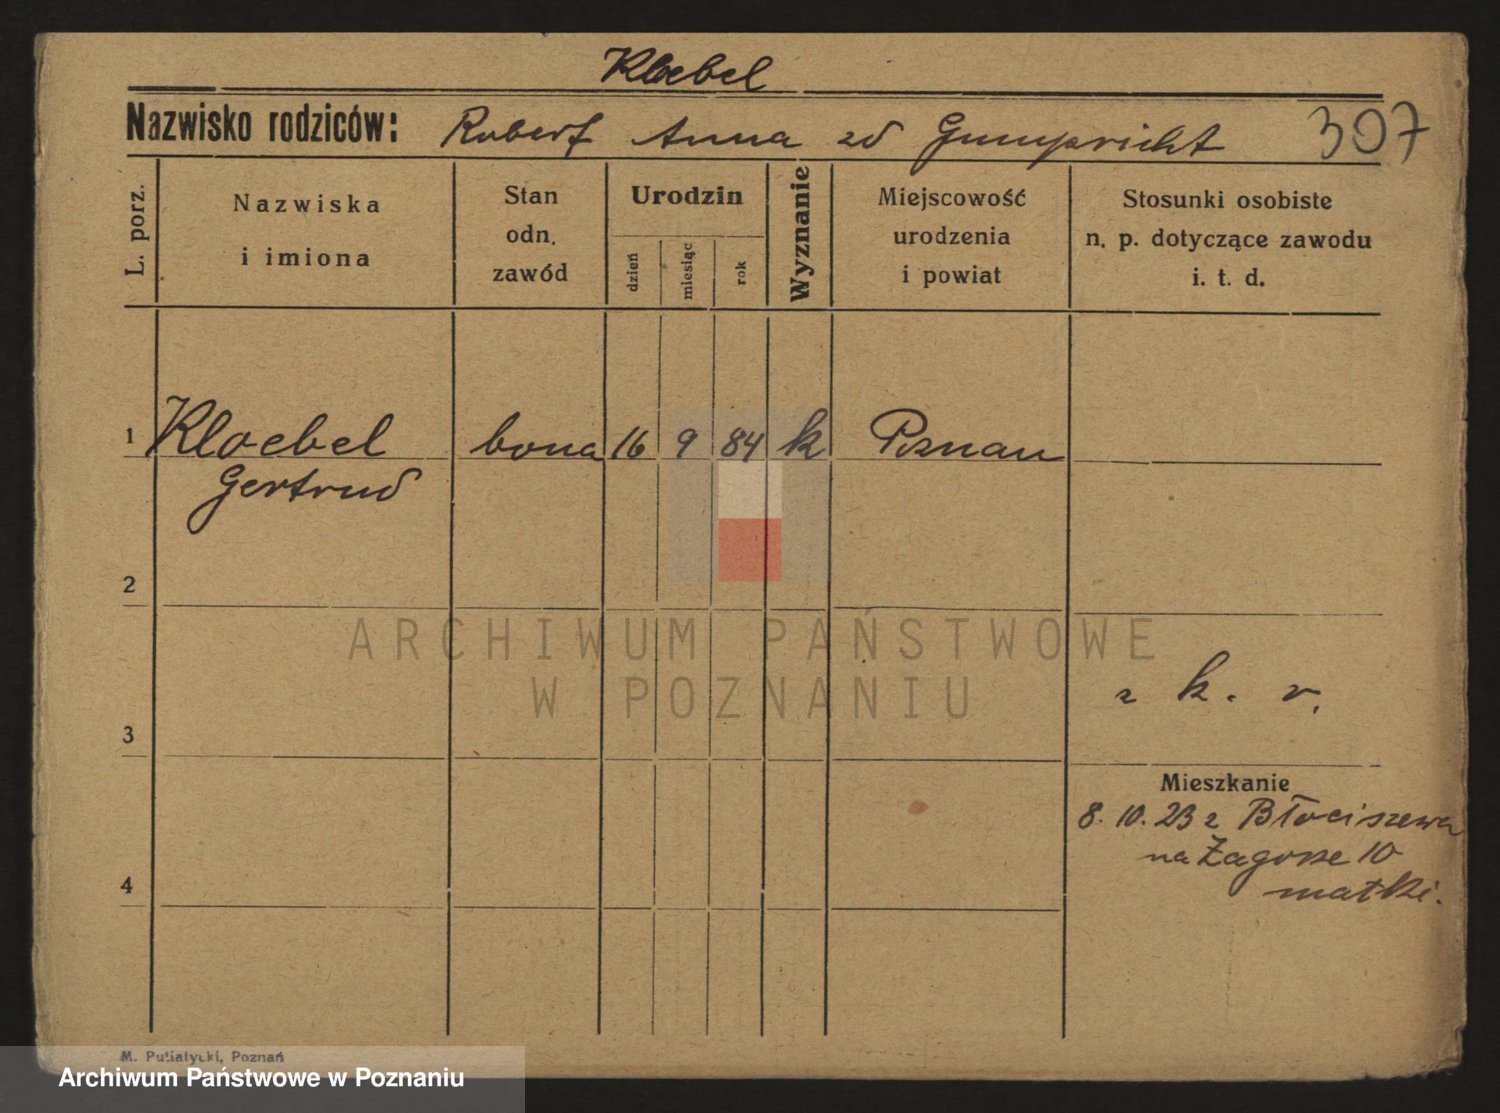 Kloebel
Nazwisko rodziców: Robert Anna zd Gumpricht 307
L. porz.
Nazwiska
i imiona
Stan
odn.
zawód
Urodzin
dzień
miesiąc
rok
Wyznanie
Miejscowość
urodzenia
i powiat
Stosunki osobiste
n. p. dotyczące zawodu
i. t. d.
1 Kloebel bona 16 9 84 k Poznań
Gertrud
2
ARCHIWUM PAŃSTWOWE
W POZNANIU
z k. r.
3
Mieszkanie
8. 10. 23 z Błociszewa
na Zagórze 10
matki.
4
M. Putiatycki, Poznań
Archiwum Państwowe w Poznaniu